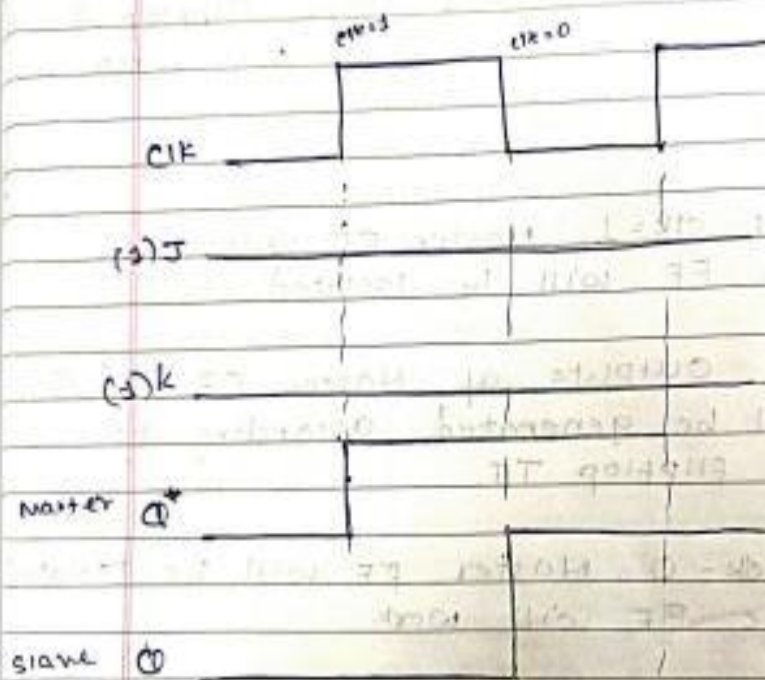 clk=1 clk=0
Clk
(1) J
(1) k
Master Q*
slave Q